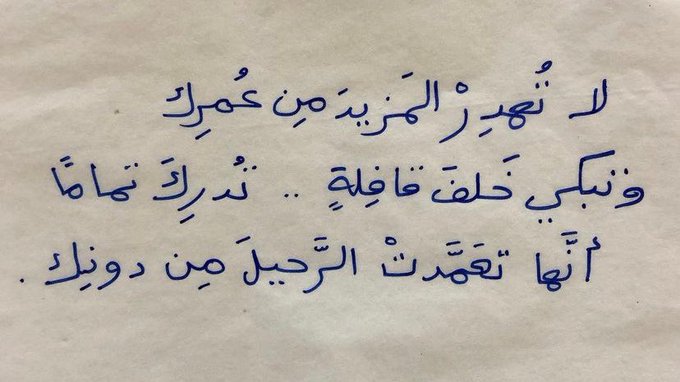 لا تُهدِرْ المَزيدَ مِن عُمرِك
وتبكي خَلفَ قافِلةٍ .. تُدرِكَ تمامًا
أنَّها تعَمَّدتْ الرَّحيلَ مِن دونِك .